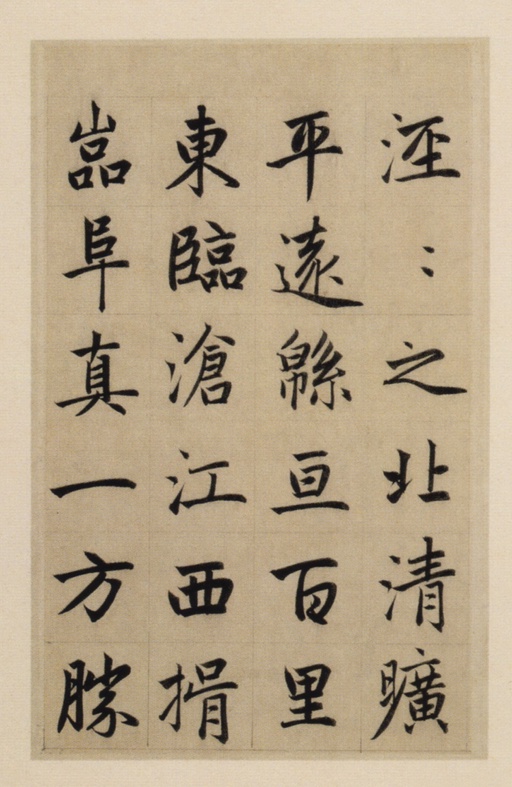 涇⺀之北清曠
平遠緜亘百里
東臨滄江西揖
嵓阜真一方勝